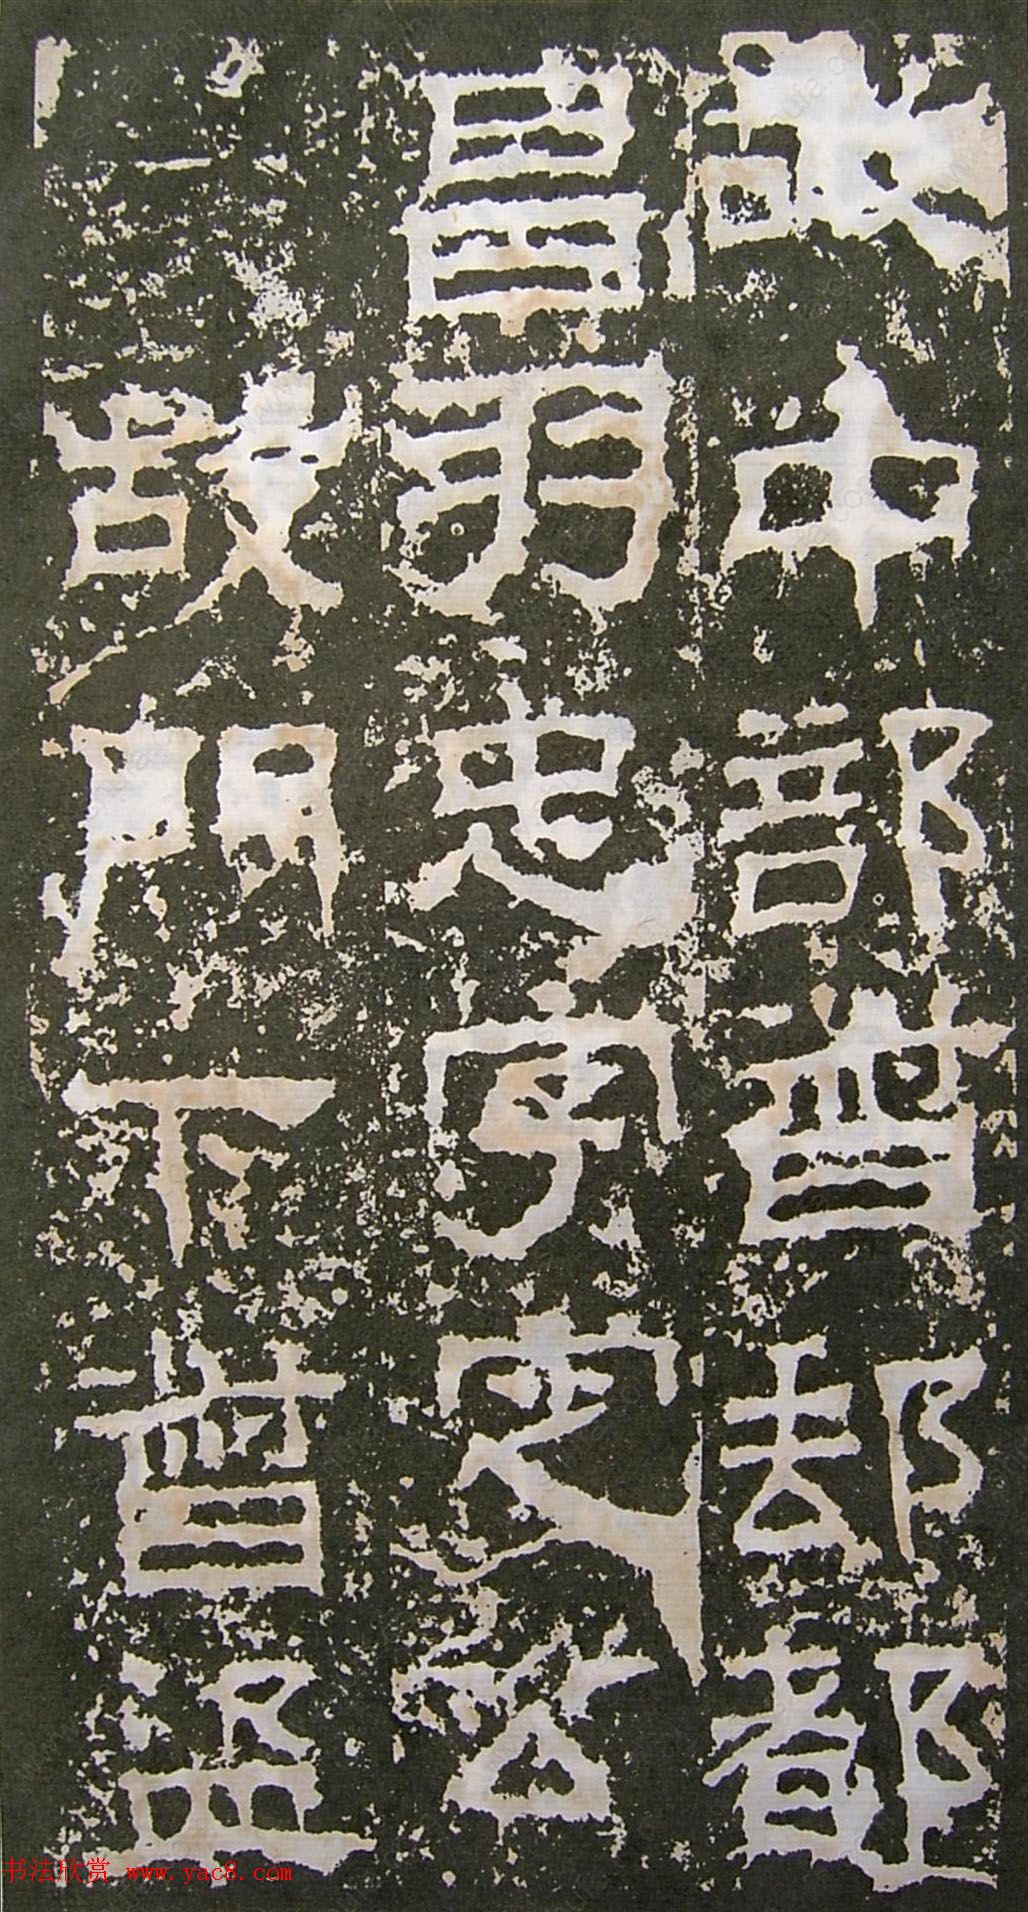 故中部督郵都
昌羽忠字定公
故門下督盜
书法欣赏 www.yac8.com